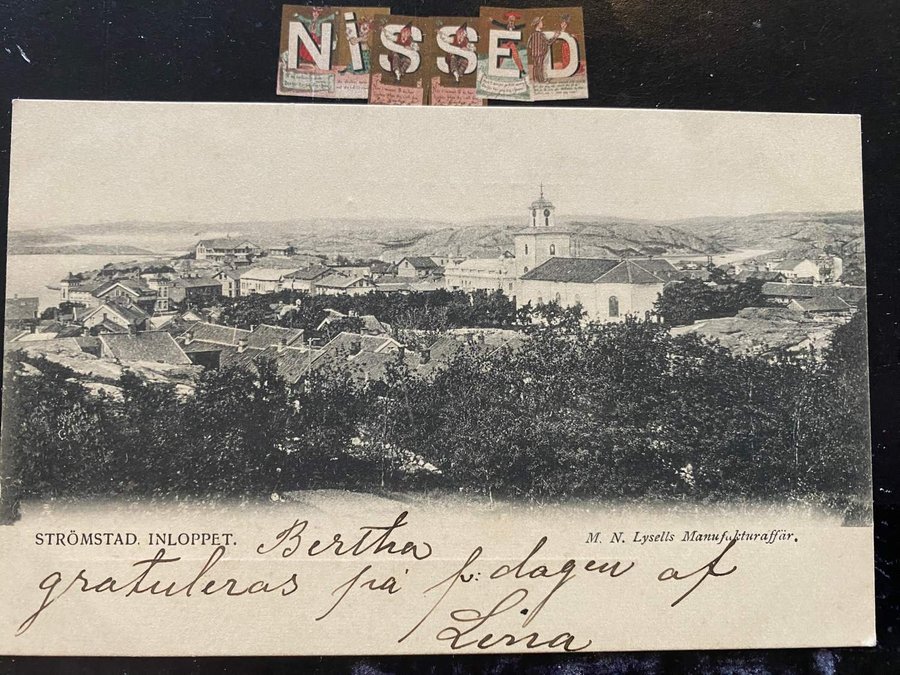 NiSSED
STRÖMSTAD. INLOPPET.
M. N. Lysells Manufakturaffär.
Bertha
gratuleras på f: dagen af
Lina